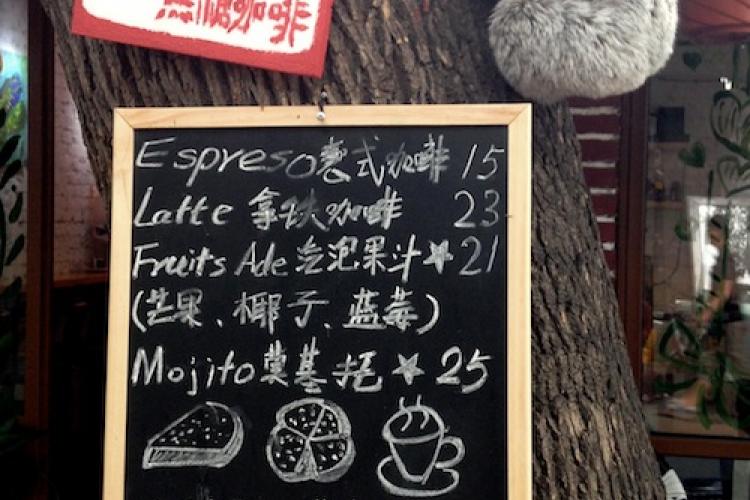 咖啡
Espreso意式咖啡 15
Latte 拿铁咖啡 23
Fruits Ade 气泡果汁★21
(芒果、椰子、蓝莓)
Mojito 莫基托★25